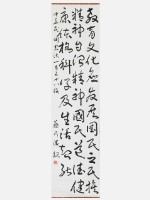 教育文化應發展國民之民族
精神自治精神國民道德健
康体格科學及生活智能